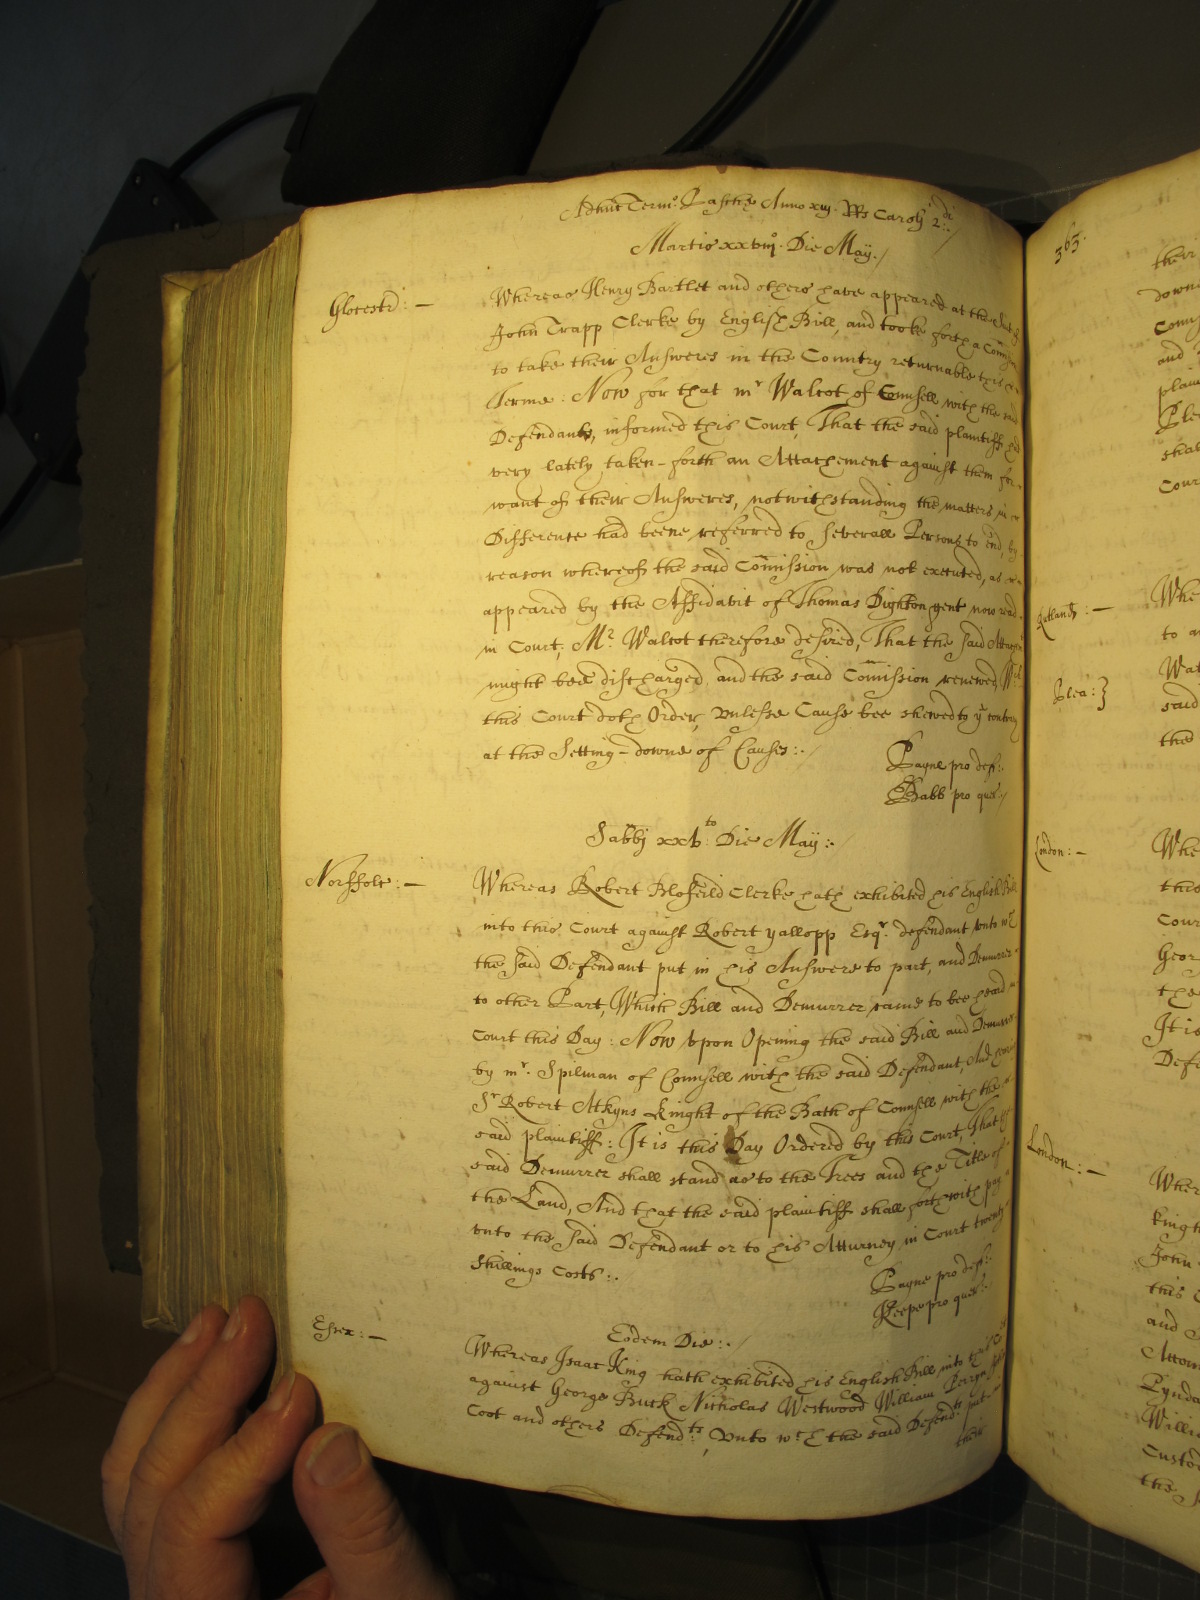 Adhuc Termo: Pasche Anno xiij. Rs Caroli 2:di
Martis xxviijo. Die May./
Glocestr: — Whereas Henry Bartlet and others have appeared at the suit of
John Trapp Clerke by English Bill, and tooke forth a Comission
to take their Answeres in the Country returnable this
Terme: Now for that mr Walcot of Counsell with the said
Defendants, informed this Court, That the said plaintiff had
very lately taken-forth an Attachement against them for
want of their Answeres, notwithstanding the matters in
Difference had beene referred to severall Persons to end, by
reason whereof the said Comission was not executed, as
appeared by the Affidavit of Thomas Dighton gent now read
in Court, Mr. Walcot therefore desired, That the said Attachmt
might bee discharged, and the said Comission renewed, Wch
this Court doth Order, vnlesse Cause bee shewed to ye contrary
at the Setting-downe of Causes:./
Payne pro def:
Babb pro quer:/
Sabbi xxvto: Die May:./
Norffolc: — Whereas Robert Blofeild Clerke hath exhibited his English Bill
into this Court against Robert Yallopp Esqr. defendant vnto wch
the said Defendant put in his Answere to part, and Demurrer
to other Part, Which Bill and Demurrer came to bee heard in
Court this Day: Now vpon Opening the said Bill and Demurrer
by mr. Spilman of Counsell with the said Defendant, And
Sr Robert Atkyns Knight of the Bath of Counsell with the
said plaintiff: It is this Day Ordered by this Court, That the
said Demurrer shall stand as to the Trees and the Title of
the Land, And that the said plaintiff shall forthwith pay
vnto the said Defendant or to his Atturney in Court twenty
shillings Costs:.
Payne pro def:
Keepe pro quer:
Eodem Die:./
Essex: — Whereas Isaac King hath exhibited his English Bill into this Court
against George Buck Nicholas Westwood William Perryn
Coot and others Defend:ts, vnto wch the said Defendts put in
their
363.
their
downe
Coun
and
plain
shal
Cour
Rutland: — Whe
to a
Plea:} Wal
said
the
London: — Whe
this
Cour
Geor
the
It is
Defe
London: — Wher
knigh
John
this
and
Attorn
Pynda
Willi
Custo
the